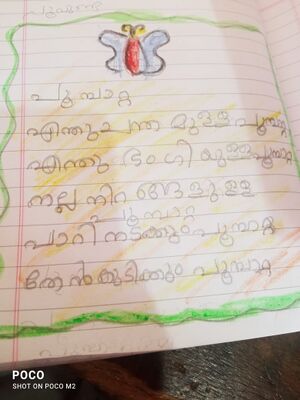 പൂമ്പാറ്റ
എന്തുചന്ത മുള്ള പൂമ്പാറ്റ
എന്തു ഭംഗി യുള്ള പൂമ്പാറ്റ
നല്ല നിറ ങ്ങളുള്ള
പൂമ്പാറ്റ
പാറി നടക്കും പൂമ്പാറ്റ
തേൻ കുടിക്കും പൂമ്പാറ്റ
POCO
SHOT ON POCO M2